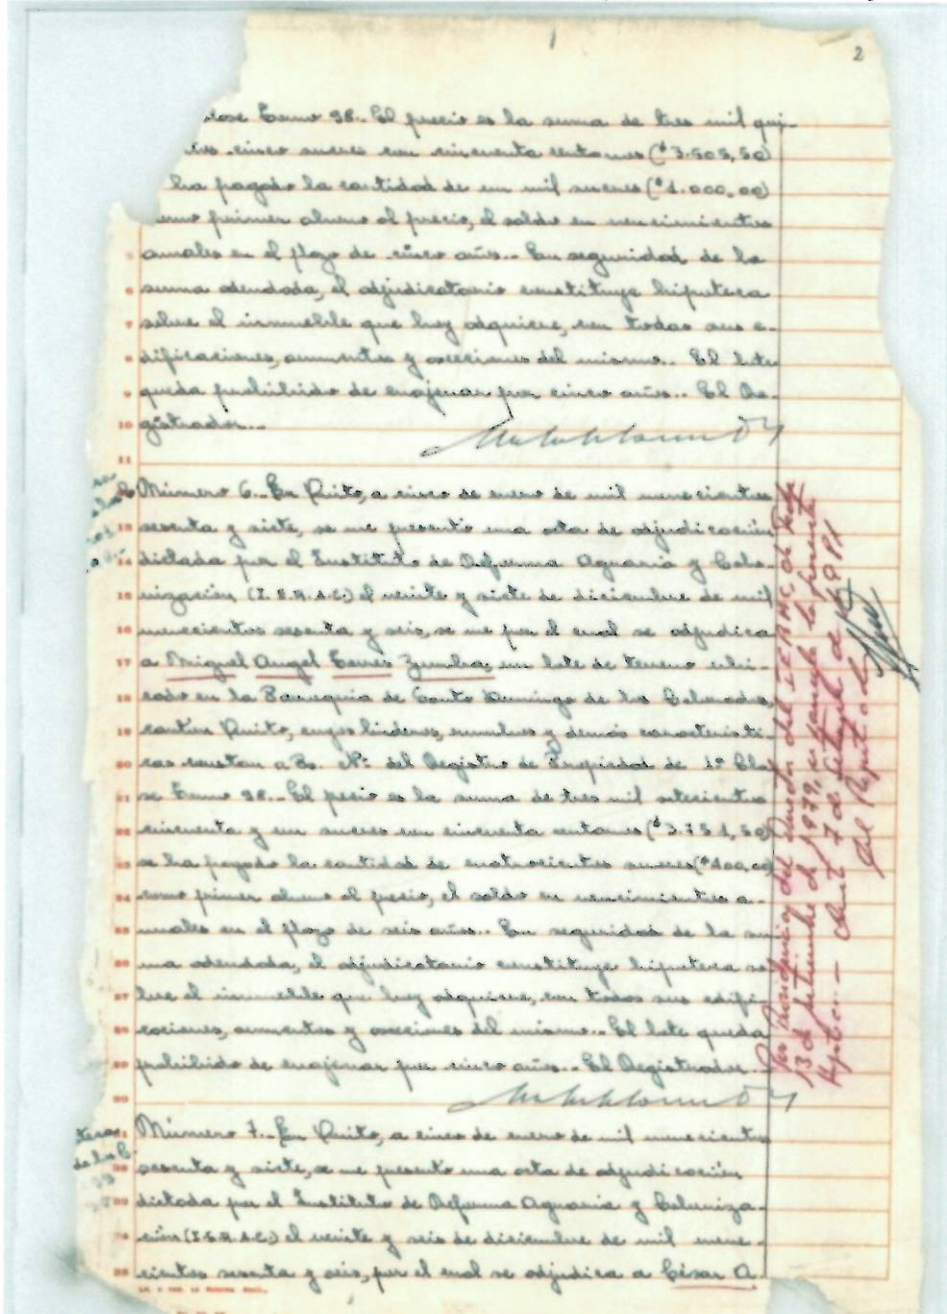 2
clase Tomo 98.. El precio es la suma de tres mil qui-
tos cinco sucres con cincuenta centavos ($3.505,50)
ha pagado la cantidad de un mil sucres ($1.000,00)
como primer abono al precio, el saldo en vencimientos
anuales en el plazo de cinco años.. En seguridad de la
suma adeudada, el adjudicatario constituye hipoteca
sobre el inmueble que hoy adquiere, con todas sus e-
dificaciones, aumentos y accesiones del mismo.. El lote
queda prohibido de enajenar por cinco años.. El Re-
gistrador..
Número 6.. En Quito, a cinco de enero de mil novecientos
sesenta y siete, se me presentó una acta de adjudicación
dictada por el Instituto de Reforma Agraria y Colo-
nización (I.E.R.A.C.) el veinte y siete de diciembre de mil
novecientos sesenta y seis, se me por el cual se adjudica
a Miguel Angel Torres Zumba, un lote de terreno ubi-
cado en la Parroquia de Santo Domingo de los Colorados,
cantón Quito, cuyos linderos, nombres y demás característi-
cas constan a Bo. Nº del Registro de Propiedad de 1ª Cla
se Tomo 98.. El precio es la suma de tres mil setecientos
cincuenta y un sucres con cincuenta centavos ($3.751,50)
se ha pagado la cantidad de cuatrocientos sucres ($400,00)
como primer abono al precio, el saldo en vencimientos a-
nuales en el plazo de seis años.. En seguridad de la su
ma adeudada, el adjudicatario constituye hipoteca so
bre el inmueble que hoy adquiere, con todas sus edifi-
caciones, aumentos y accesiones del mismo.. El lote queda
prohibido de enajenar por cinco años.. El Registrador..
Número 7.. En Quito, a cinco de enero de mil novecientos
sesenta y siete, se me presentó una acta de adjudicación
dictada por el Instituto de Reforma Agraria y Coloniza-
ción (I.E.R.A.C.) el veinte y seis de diciembre de mil nove-
cientos sesenta y seis, por el cual se adjudica a César A.
del Director del IERAC, de fecha
13 de setiembre de 1979, se cancela la presente
Hipoteca.- Quito, 17 de setiembre de 1981
El Registrador